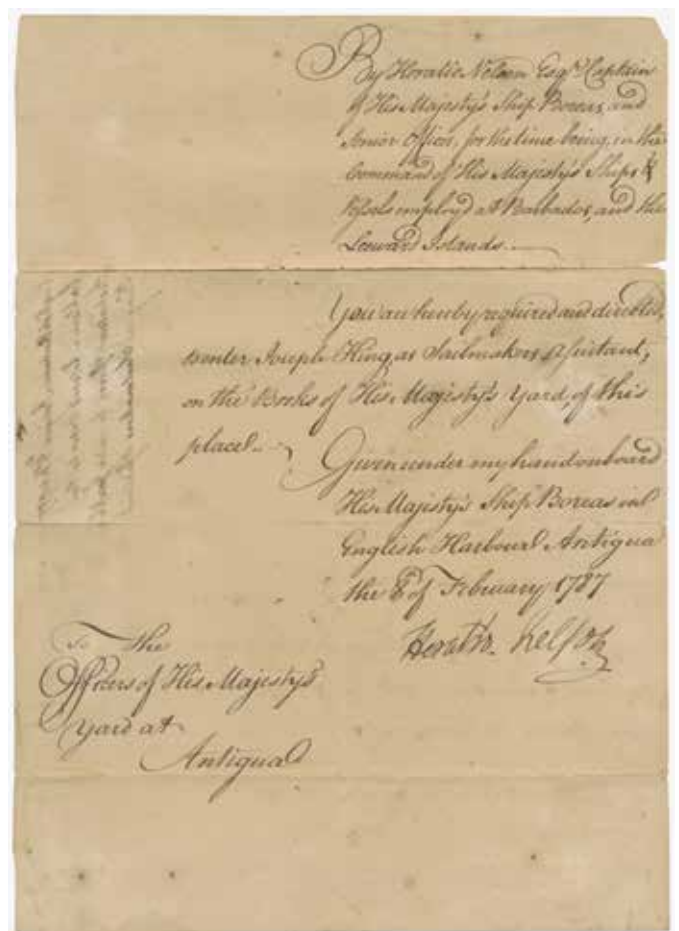 By Horatio Nelson Esqr. Captain
of His Majesty's Ship Boreas, and
Senior Officer, for the time being, in the
Command of His Majesty's Ships &
Vessels employ'd at Barbados, and the
Leeward Islands.
You are hereby required and directed,
to enter Joseph King, as Sailmakers Assistant,
on the Books of His Majesty's Yard, of this
place.
Given under my hand onboard
His Majesty's Ship Boreas in
English Harbour Antigua
the 8 of February 1787
Horatio Nelson
To The
Officers of His Majesty's
Yard at
Antigua